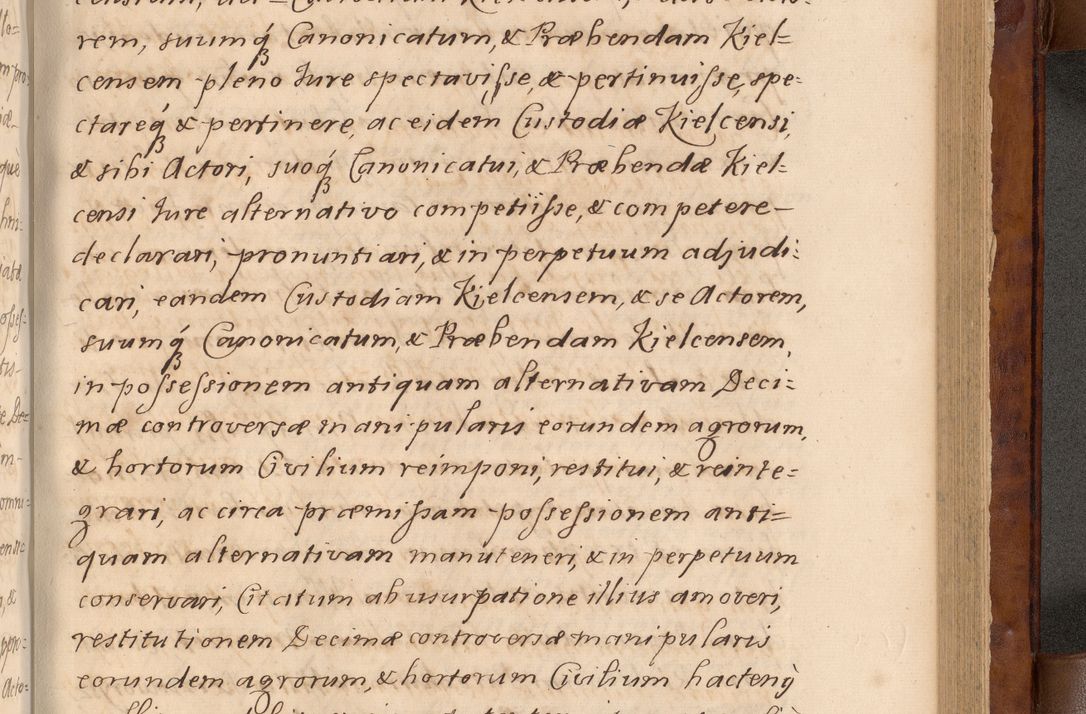 rem, suumq́ʒ Canonicatum, & Præbendam Kiel=
censem pleno Jure spectavisse, & pertinuisse, spe=
ctareq́ʒ & pertinere, ac eidem Custodiæ Kielcensi,
& sibi Actori, suoq́ʒ Canonicatui, & Præbendæ Kiel=
censi Jure alternativo competiisse, & competere
declarari, pronuntiari, & in perpetuum adjudi=
cari, eandem Custodiam Kielcensem, & se Actorem,
suumq́ʒ Canonicatum, & Præbendam Kielcensem,
in possessionem antiquam alternativam Deci=
mæ controversæ manipularis eorundem agrorum,
& hortorum Civilium reimponi, restitui, & reinte=
grari, ac circa præmissam possessionem anti=
quam alternativam manuteneri, & in perpetuum
conservari, Citatum ab usurpatione illius amoveri,
restitutionem Decimæ controversæ manipularis
eorundem agrorum, & hortorum Civilium hactenq̀